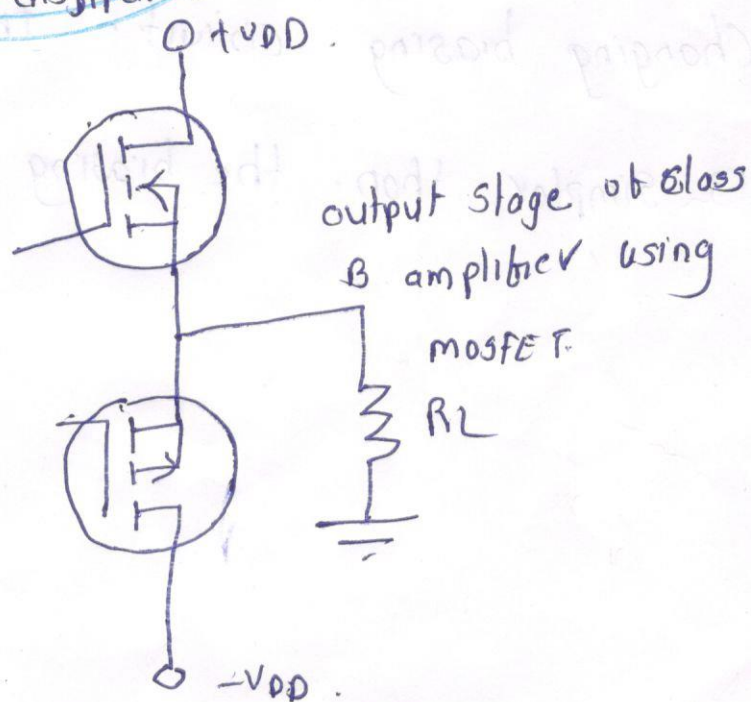 +VDD.
output stage of class
B amplifier using
MOSFET.
RL
-VDD.